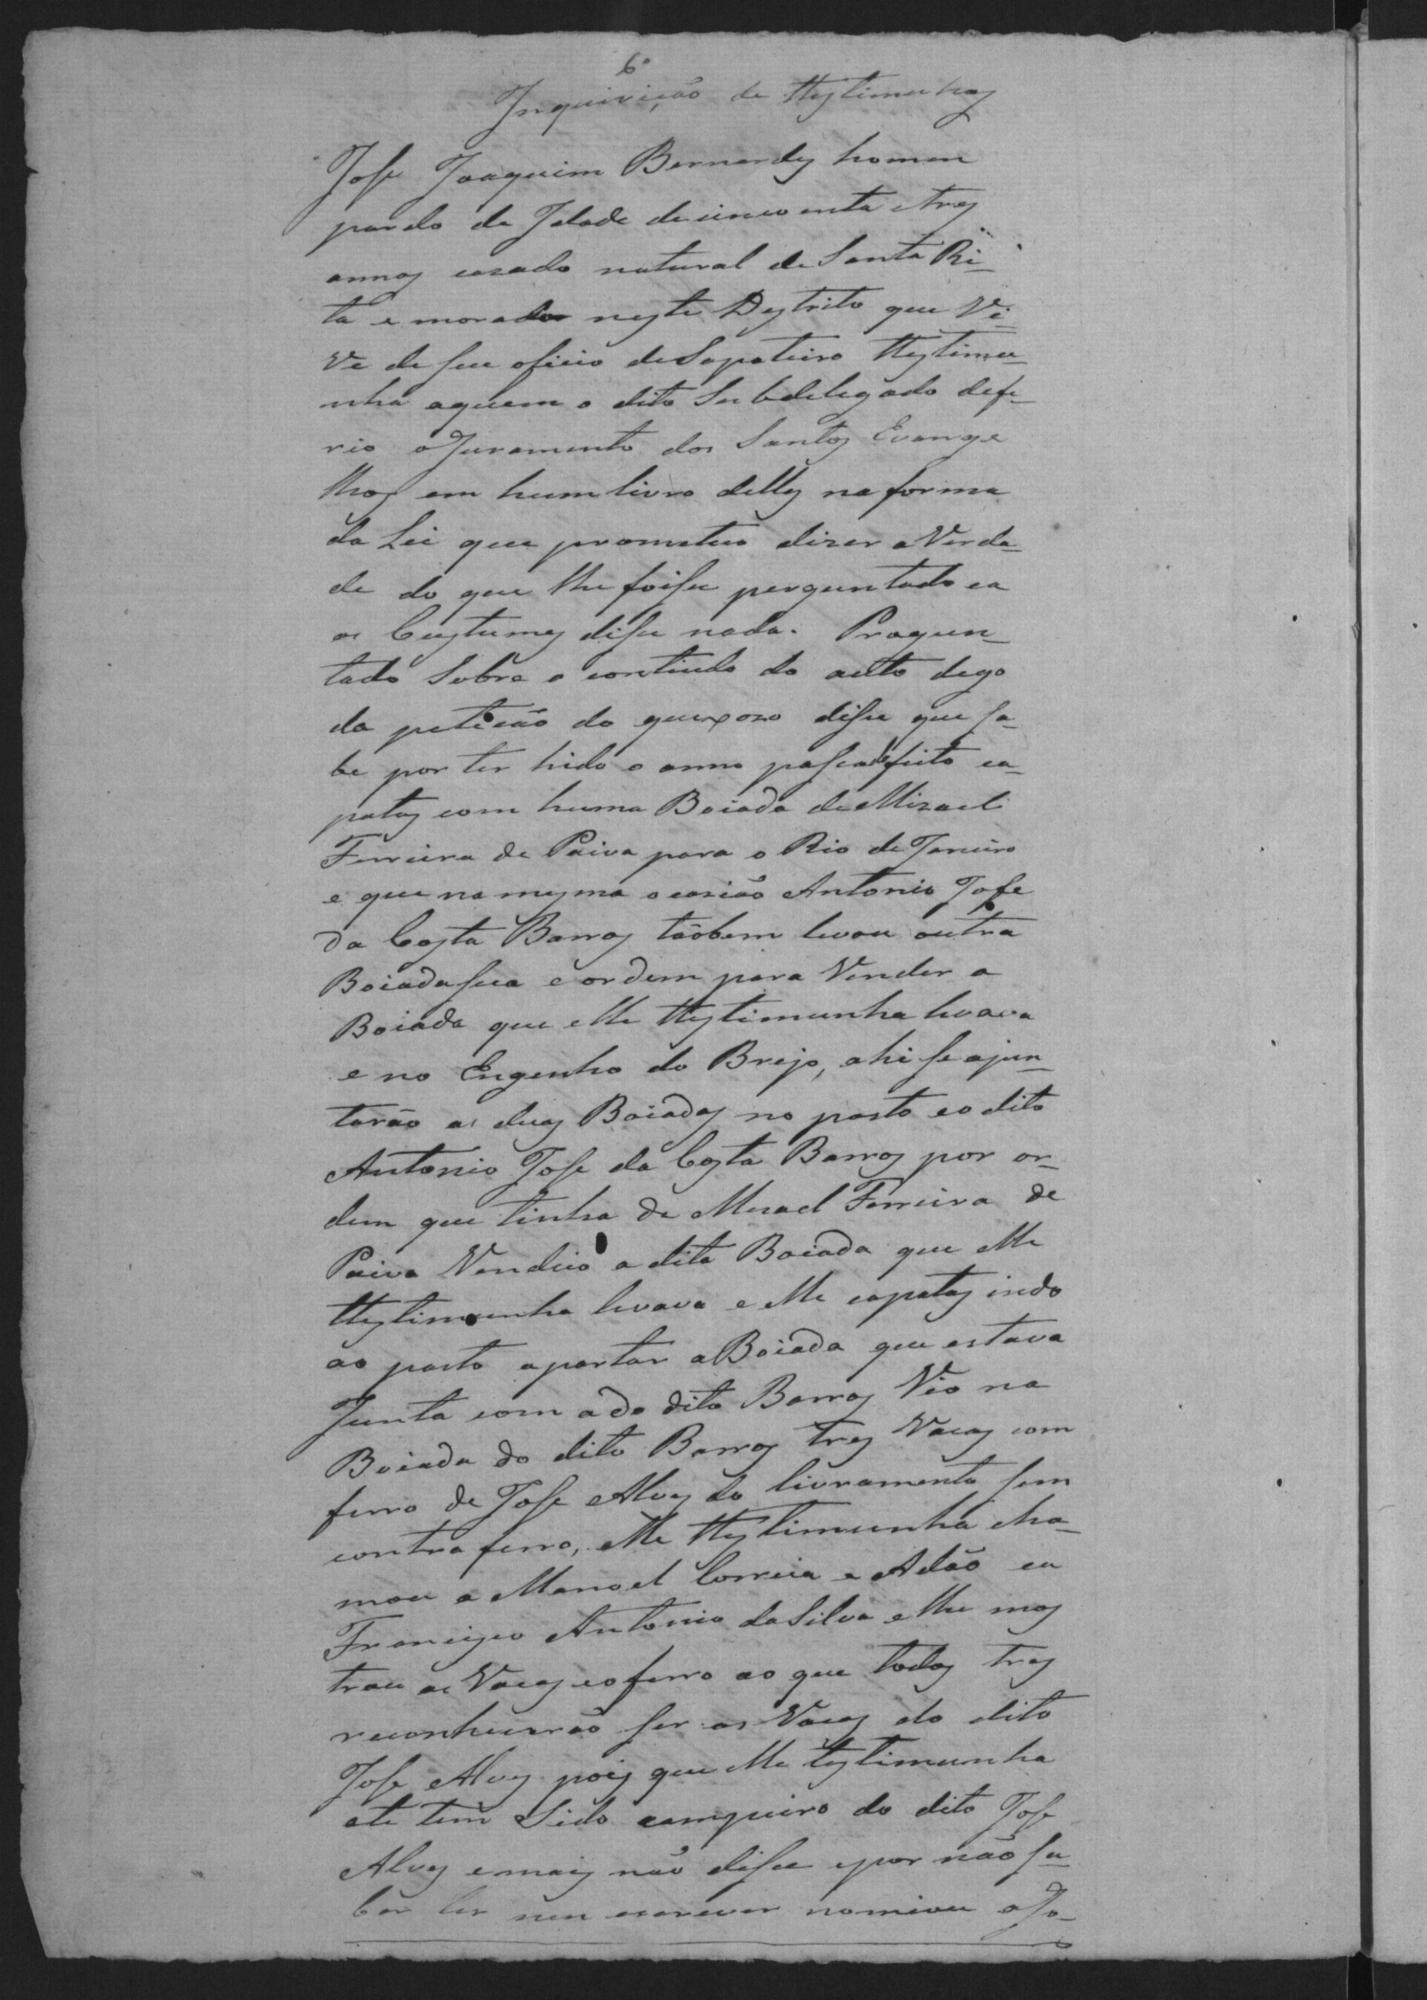 6º
Inquirição de ttestimunhas
Jose Joaquim Bernardes homem
pardo de Idade de cincoenta e tres
annos casado natural de Santa Ri-
ta e morador neste Destrito que Vi-
ve de seu oficio de Sapateiro ttestimu-
nha aquem o dito Subdelegado defe-
rio o Juramento dos Santos Evange
lhos em hum livro delles na forma
da Lei que prometeo dizer a Verda-
de do que lhe foise perguntado ea
os Custumes dise nada. Pregun-
tado Sobre o contiudo do aulto digo
da peticão do queixozo dise que sa-
be por ter hido o anno pasado feito ca-
patas com huma Boiada de Mizael
Ferreira de Paiva para o Rio de Janeiro
e que na mesma ocasião Antonio Jose
da Costa Barros tãobem levou outra
Boiada sua e ordem para Vender a
Boiada que elle ttestimunha levava
e no Engenho do Brejo, ahi se ajun-
tarão as duas Boiadas no pasto e o dito
Antonio Jose da Costa Barros por or-
dem que tinha de Mizael Ferreira de
Paiva Vendeo a dita Boiada que elle
ttestimunha levava e elle capatas indo
ao pasto apartar a Boiada que estava
Junta com a do dito Barros Vio na
Boiada do dito Barros tres Vacas com
ferro de Jose Alves do livramento sem
contra ferro, elle ttestimunha cha-
mou a Manoel Correia e Adão ea
Francisco Antonio da Silva e lhe mos
trou as Vacas e o ferro ao que todos tres
reconhecerão ser as Vacas do dito
Jose Alves pois que elle testimunha
ate tem Sido campeiro do dito Jose
Alves e mais não dise e por não sa-
ber ler nem escrever nomiou a Jo-